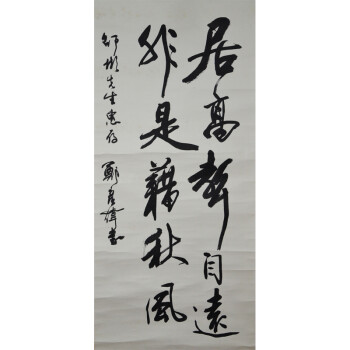 居高聲自遠
非是藉秋風
先生惠存
鄭